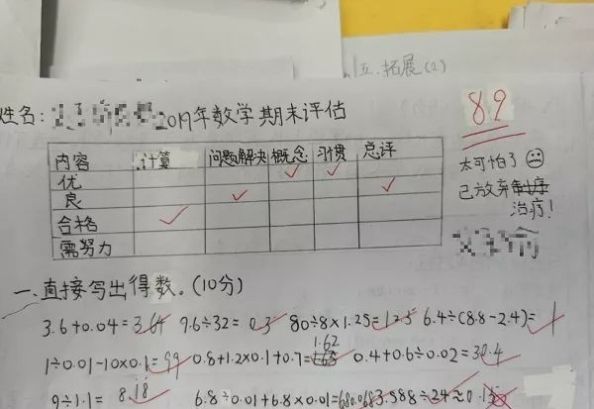 五.拓展(2)
姓名: 2019年数学期末评估
89
内容 计算 问题解决 概念 习惯 总评
优
良
合格
需努力
太可怕了
已放弃
治疗!
一、直接写出得数。(10分)
3.6+0.04=3.64 9.6÷32=0.3 80÷8×1.25=12.5 6.4÷(8.8-2.4)=1
1÷0.01-10×0.1=99 0.8+1.2×0.1+0.7=1.62 0.4+0.6÷0.02=30.4
9÷1.1=8.18 6.8÷0.01+6.8×0.01=680.068 3.588÷24≈0.15